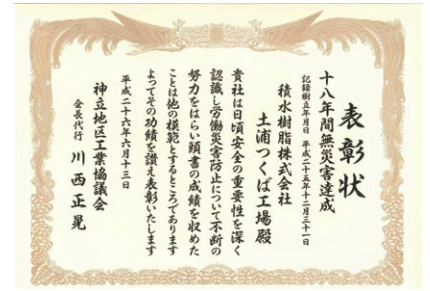 表彰状
十八年間無災害達成
記録樹立年月日 平成二十五年十二月三十一日
積水樹脂株式会社
土浦つくば工場殿
貴社は日頃安全の重要性を深く
認識し労働災害防止について不断の
努力をはらい頭書の成績を収めた
ことは他の模範とするところであります
よってその功績を讃え表彰いたします
平成二十六年六月十三日
神立地区工業協議会
会長代行 川西正晃